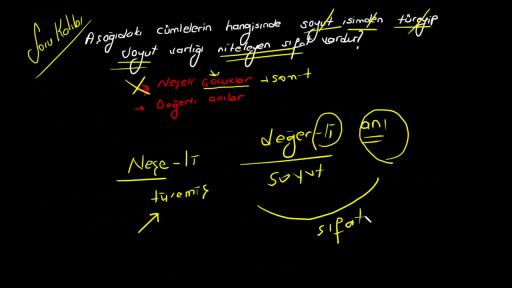 Soru Kalıbı
Aşağıdaki cümlelerin hangisinde soyut isimden türeyip
soyut varlığı niteleyen sıfat vardır?
→ Neşeli çocuklar → somut
→ Değerli anılar
değer-li anı
Neşe-li soyut
türemiş
sıfat